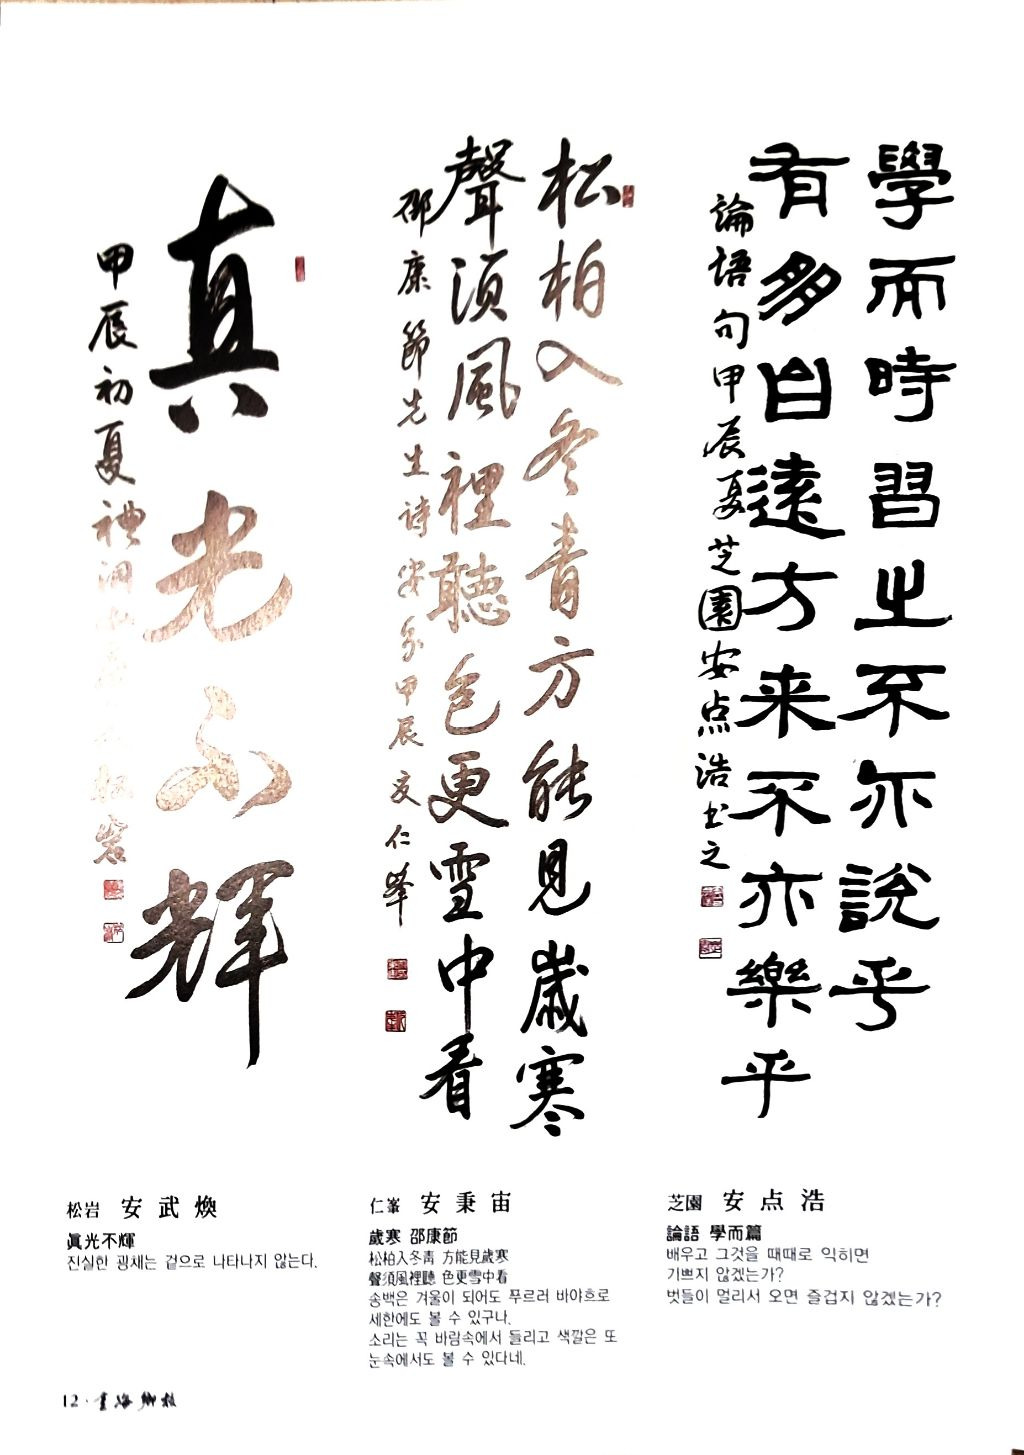 學而時習之不亦說乎
有朋自遠方来不亦樂乎
論語句甲辰夏芝園安点浩书之
松柏入冬青方能見歲寒
聲須風裡聽色更雪中看
邵康節先生诗 甲辰 仁峯
真光不輝
甲辰初夏禮洞 松岩
松岩 安武煥
眞光不輝
진실한 광채는 겉으로 나타나지 않는다.
仁峯 安秉宙
歲寒 邵康節
松柏入冬靑 方能見歲寒
聲須風裡聽 色更雪中看
송백은 겨울이 되어도 푸르러 바야흐로
세한에도 볼 수 있구나.
소리는 꼭 바람속에서 들리고 색깔은 또
눈속에서도 볼 수 있다네.
芝園 安点浩
論語 學而篇
배우고 그것을 때때로 익히면
기쁘지 않겠는가?
벗들이 멀리서 오면 즐겁지 않겠는가?
12 · 書海